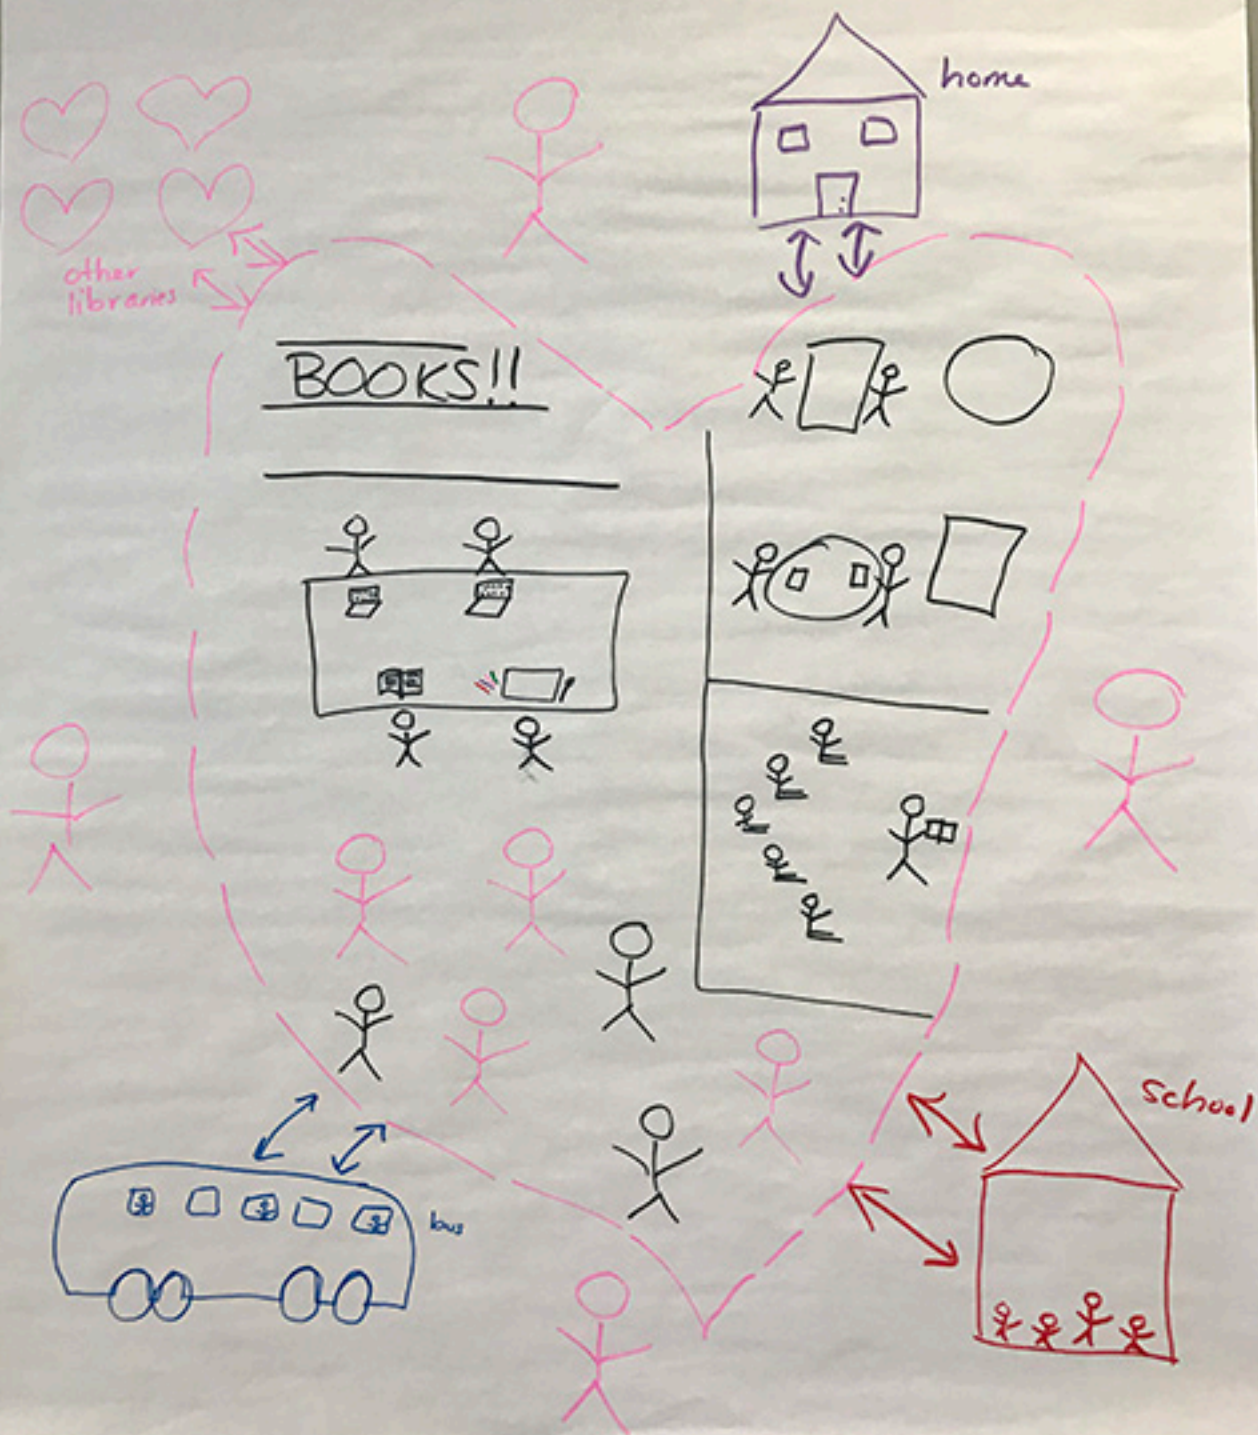 home
other
libraries
BOOKS!!
school
bus